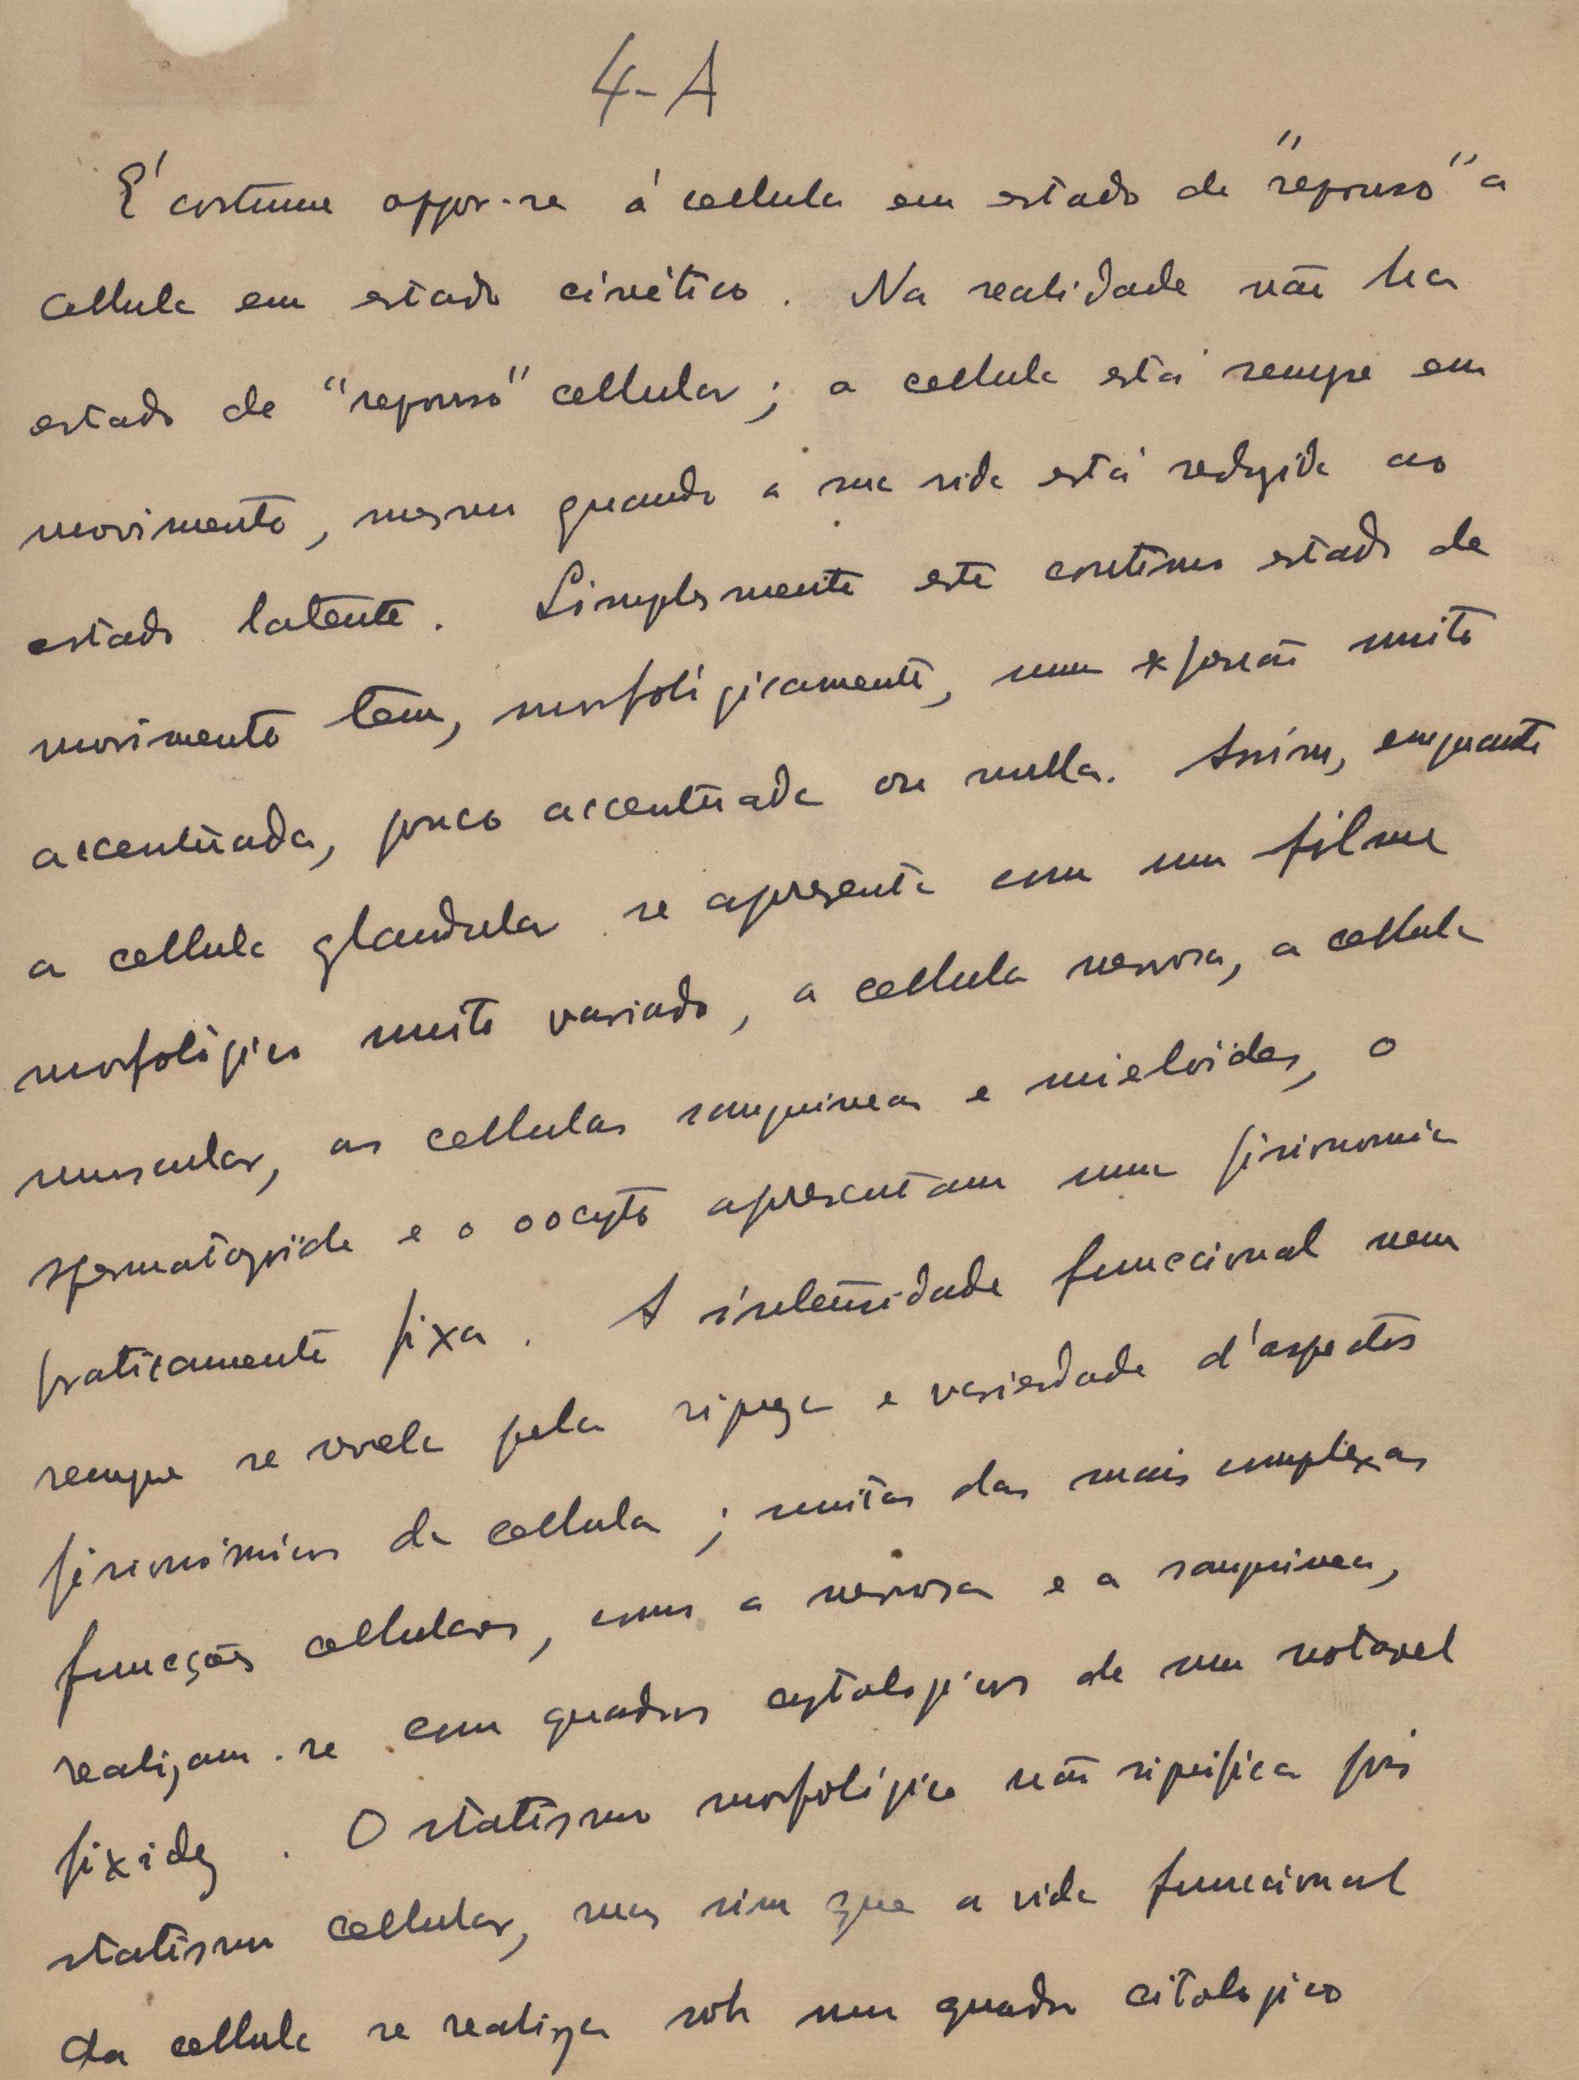 4-A
É costume oppor-se á cellula em estado de "repouso" a
cellula em estado cinético. Na realidade não ha
estado de "repouso" cellular; a cellula está sempre em
movimento, mesmo quando a sua vida está reduzida ao
estado latente. Simplesmente este continuo estado de
movimento tem, morfológicamente, uma expressão muito
accentuada, pouco accentuada ou nulla. Assim, emquanto
a cellula glandular se apresenta com um filme
morfológico muito variado, a cellula nervosa, a cellula
muscular, as cellulas sanguineas e mieloides, o
spermatozoide e o oocyto apresentam uma fisionomia
praticamente fixa. A intensidade funccional nem
sempre se revela pela riqueza e variedade d'aspectos
fisionómicos da cellula; muitas das mais complexas
funcções cellulares, como a nervosa e a sanguinea,
realizam-se com quadros cytologicos de um notavel
fixidez. O statismo morfológico não significa pois
statismo cellular, mas sim que a vida funccional
da cellula se realiza sob um quadro citologico